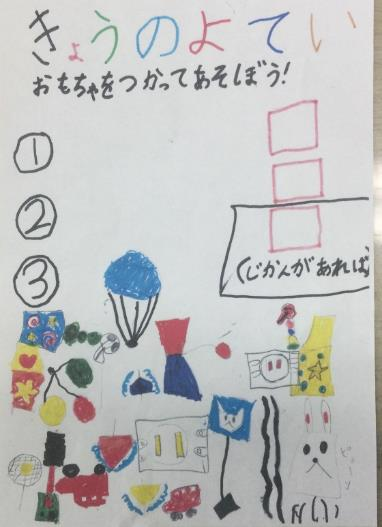 きょうのよてい
おもちゃをつかってあそぼう！
①
②
③
（じかんがあれば）